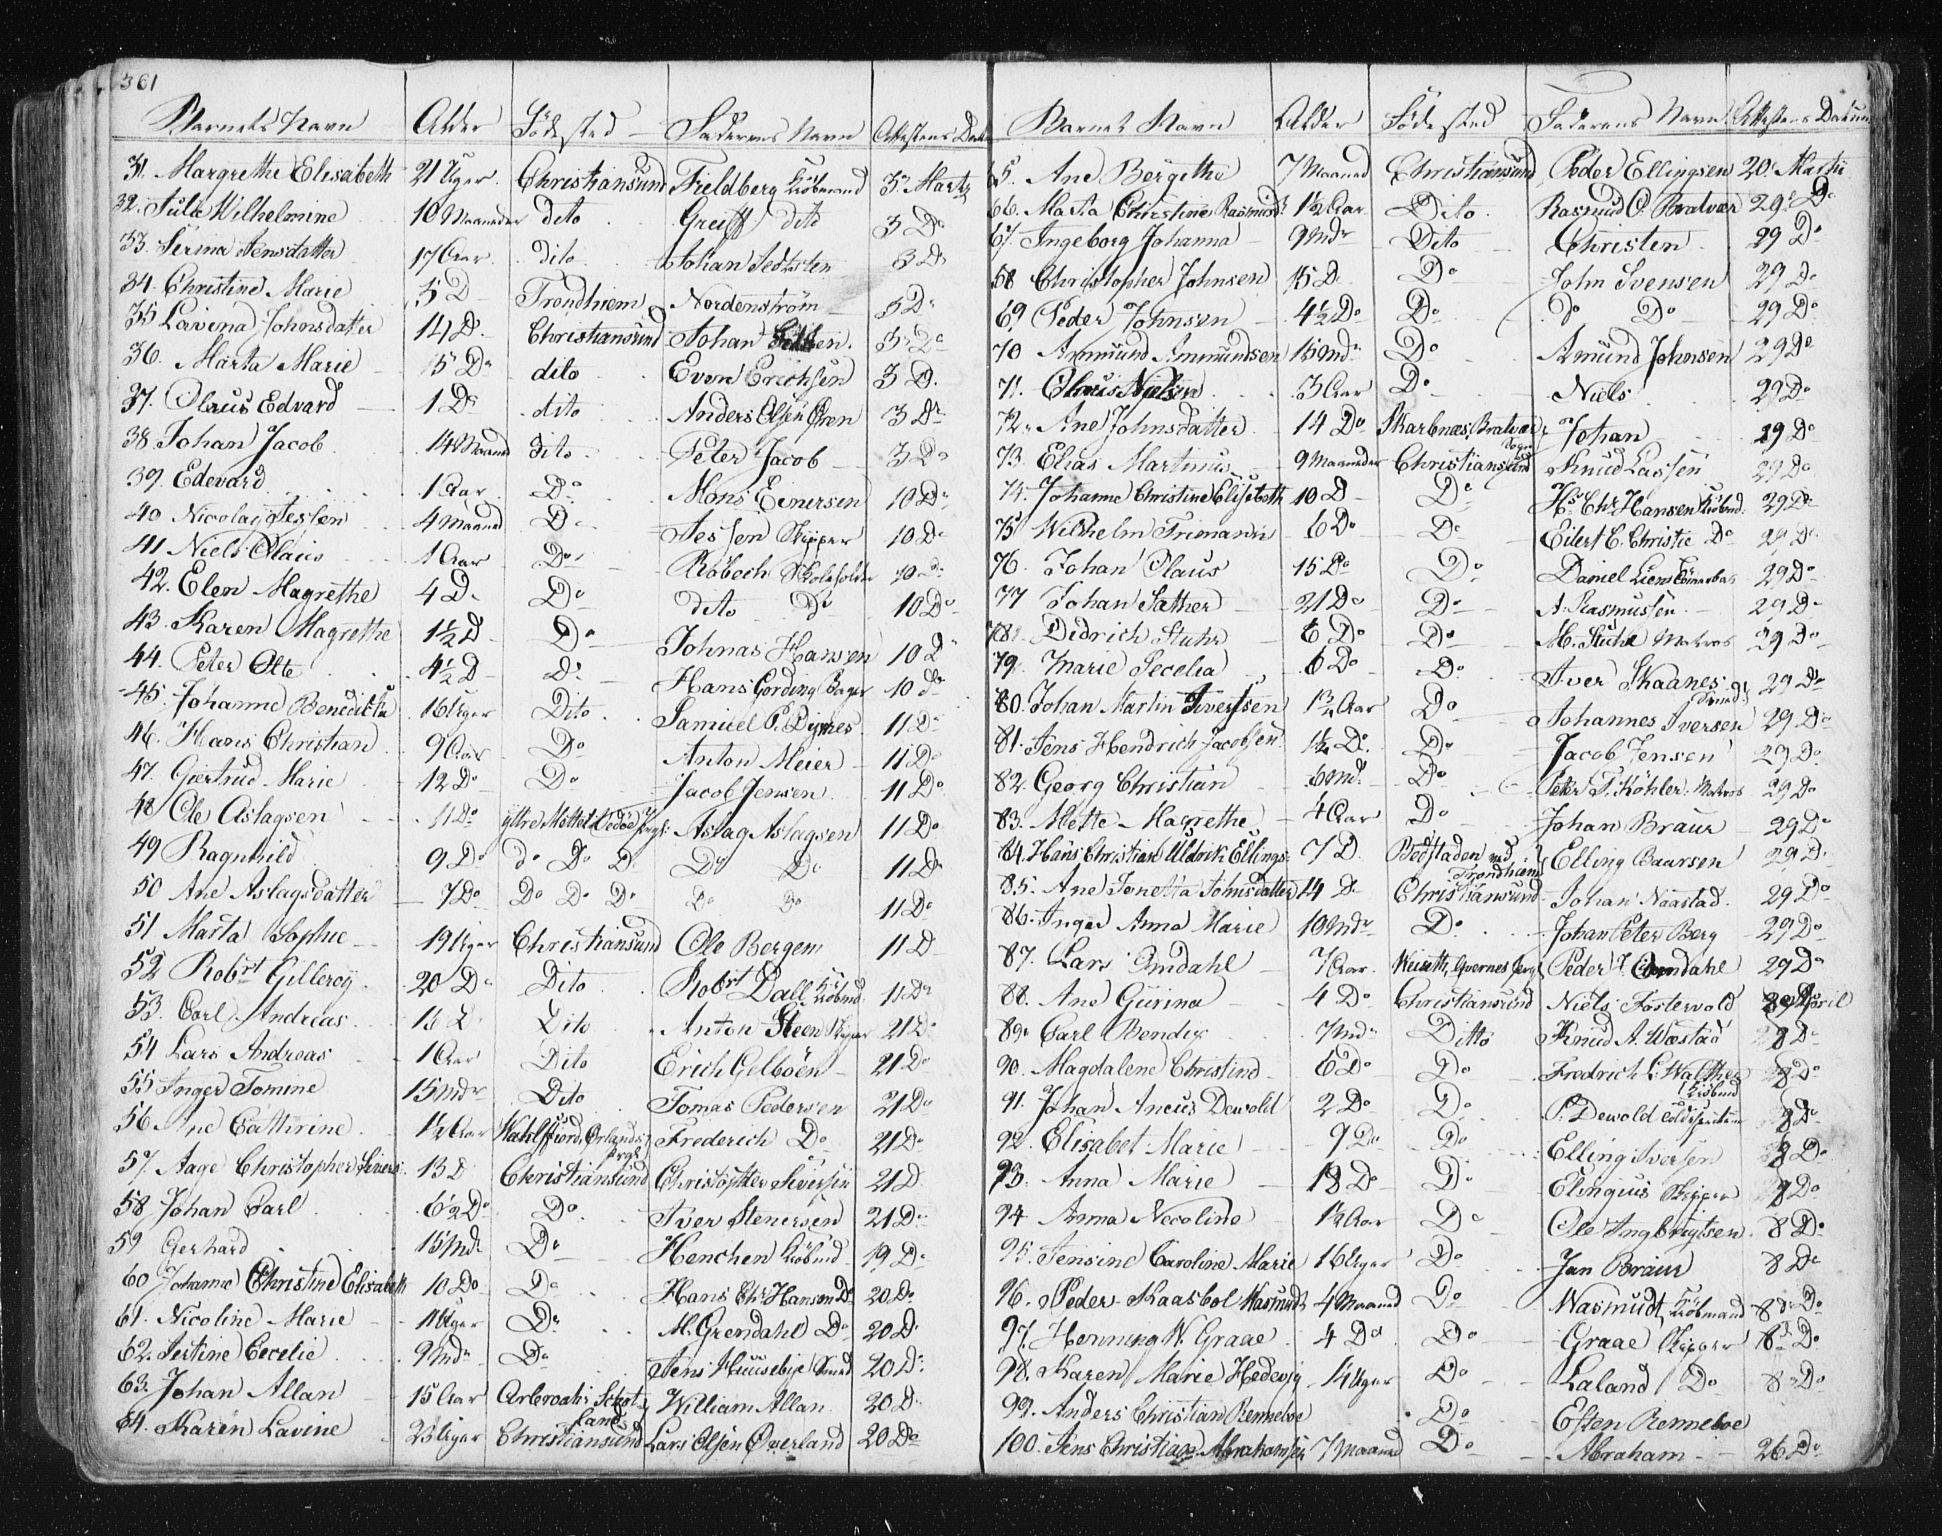 361
Barnets Navn Alder Födested Faderens Navn Attestens Dat
31. Margrethe Elisabeth 21 Uger. Christiansund Fieldberg Kiöbmand 3 Martz
32. Julie Wilhelmine 10 Maaneder dito Greiff dito 3 Do
33. Serina Jensdatter 17 Aar dito Johan 3 Do
34. Christine Marie 5 D Trondhiem Nordenström 3 Do
35 Lavina Johnsdatter 14 D. Christiansund Johan 3 Do
36. Marta Marie 5 Do dito Even Erichsen 3 D.
37. Olaus Edvard 1 Do dito Anders Olsen Ören 3 Do
38. Johan Jacob 14 Maaned dito Peter Jacob 3 Do
39. Edevard 1 Aar Do Mons Einersen 10 Do
40 Nicolay Jessen 4 Maaned Do Jessen Skipper 10 Do
41 Niels Olaus 1 Aar Do Röbech Skoleholder 10 Do
42. Elen Magrethe 4 D. Do dito do 10 Do
43. Karen Magrethe 1½ D Do Johnas Hansen 10 D
44. Peter Otte 4½ D Do Hans Gording Bager 10 Do
45. Johanne Benedicta 16 Uger Dito Samuel P. Dymes 11 Do
46. Hans Christian 9 Aar Do Anton Meier 11 Do
47. Giertrud Marie 12 Do Do Jacob Jensen 11 Do
48 Ole Aslagsen 11 Do yttre Aslag Aslagsen 11 Do
49 Ragnhild 9 Do do Do D Do Do 11 Do
50 Ane Aslagsdatter 7 Do Do Do Do Do Do 11 Do
51 Marta Sophie 19 Uger Christiansund Ole Bergem 11 D
52 Robrt Gilleroy 20 Do Dito Robrt Dall Kiöbmd 11 Do
53. Carl Andreas 13 D Dito Anton Steen Skipper 21 Do
54 Lars Andreas 1 Aar Dito Erich Gelböen 21 Do
55 Inger Tomine 15 Mdr Dito Tomas Pedersen 21 Do
56 Ane Cathrine 1½ Aar Wahlsfiord, Örlands Prgl. Frederich Do 21 Do
57. Aage Christopher Sivers: 13 D Christiansund Christopher Siversen 21 D
58 Johan Carl 6½ Do Do Iver Stenersen 21 Do
59 Gerhard 15 Mdr Do Henchen Kiöbmd 19 Do
60 Johanne Christine Elisabeth 10 Do Do Hans Chr Hansen Do 20 Do
61. Nicoline Marie 11 Uger Do M. Grendahl Do 20 D
62. Jertine Cecelie 9 Mdr Do Jens Huusebye Smed 20 D:
63. Johan Allan 15 Aar Arbroath i Skotland William Allan 20 D
64. Karen Lavine 23 Uger Christiansund Lars Olsen Överland 20 Do
Barnets Navn Alder Födested Faderens Navn Attestens Datum
65. Ane Bergithe 7 Maaned Christiansund Peder Ellingsen 20 Martii
66. Maria Christine Rasmusd: 1½ Aar Dito Rasmus O. Bratvær 29 Do
67. Ingeborg Johanna 9 Mdr Dito Christen 29 Do
68 Christopher Johnsen 15 D Do John Svensen 29 Do
69 Peder Johnsen 4½ Do Do Do Do 29 Do
70 Ammund Ammundsen 15 Mdr Do Amund Johnsen 29 Do
71. Claus Nielsen 3 Aar Do Niels 29 Do
72. Ane Johnsdatter 14 Do Skarbnæs, Bratvær Sogn Johan 29 Do
73. Elias Martinus 9 Maaneder Christiansund Knud Lassen 29 Do
74. Johanne Christine Elisebeth 10 D Do Hs Chr. Hansen Kiöbmd. 29 Do
75 Wilhelm Friemann 6 Do Do Eilert E. Christie Do 29 Do
76. Johan Olaus 15 Do Do Daniel Liens 29 Do
77 Johan Sather 21 Do Do A. Rasmussen 29 Do
78. Didrich Stuhr 6 Do Do M. Stuhr Matros 29 Do
79. Marie Secelia 6 Do Do Iver Skaanes 29 Do
80. Johan Martin Iversen 1¾ Aar Do Johannes Iversen 29 Do
81. Jens Hendrich Jacobsen 1¼ Do. Do Jacob Jensen 29 Do
82. Georg Christian 6 Md. Do Peter P. Köhler. Matros 29 Do
83. Mette Magrethe 4 Aar Do Johan Braur 29 Do
84. Hans Christian Uldrik Ellings: 7 D. Bedstaden ved Trondhiem Elling Baarsen 29 D.
85. Ane Jonetta Johnsdatter 14 D Christiansund Johan Naastad 29 Do
86. Inger Anna Marie 10 Mdr Do Johan Peter Berg 29 Do
87. Lars Omdahl 7 Aar. Keiseth, Qvernes Prgl Peder J. Omdahl 29 Do
88. Ane Gurina 4 Do Christiansund Niels Fostervold April
89. Carl Bendix 7 Mdr Ditto Knud A. Wæstad 8 Do
90. Magdalene Christine 6 Do Do Fredrich L: Walther Kiöbmd 8 Do
91. Johan Ancus Dewold 2 Do Do P. Dewold 8 Do
92. Elisabet Marie 9 Do Do Elling Iversen 8 Do
93. Anna Marie 18 Do Do Elingius Skipper 8 Do
94 Anna Necoline 1½ Aar Do Ole Ingbrigtsen 8 Do
95. Jensine Caroline Marie 16 Uger Do Jan Braur 8 Do
96. Peder Kaasbol Wasmuth 4 Maaned Do Wasmudt, Kiöbmand 8 Do
97. Henning W. Graae 4 Do Do Graae Skipper 8 Do
98. Karen Marie Hedevig 14 Uger Do Laland Do 8 Do
99. Anders Christian Renneboe Do Esten Renneboe
100. Jens Christian Abrahamsen 7 Maaned Do Abraham 26 Do